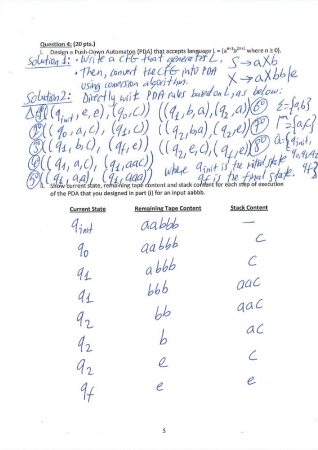 Question 4: (20 pts.)
i. Design a Push-Down Automaton (PDA) that accepts language L = {aⁿ⁺¹bⁿ⁺¹ where n ≥ 0}.
Solution 1: • Write a CFG that generates L. S → aXb
• Then, convert the CFG into PDA X → aXbb|e
using conversion algorithm.
Solution 2: Directly write PDA rules based on L, as below:
Δ ((qinit, e, e), (q0, c)) ((q1, b, a), (q2, a)) 6° Σ={a,b}
2° ((q0, a, c), (q1, c)) ((q2, b, a), (q2, e)) 7° Γ={a,c}
3° ((q1, b, c), (qf, e)) ((q2, e, c), (qf, e)) 8° Q={qinit,
4° ((q1, a, c), (q1, aac)) where qinit is the initial state q0, q1, q2
5° ((q1, a, a), (q1, aaa)) qf is the final state. qf}
Show current state, remaining tape content and stack content for each step of execution
of the PDA that you designed in part (i) for an input aabbb.
Current State Remaining Tape Content Stack Content
qinit aabbb —
q0 aabbb c
q1 abbb c
q1 bbb aac
q2 bb aac
q2 b ac
q2 e c
qf e e
5